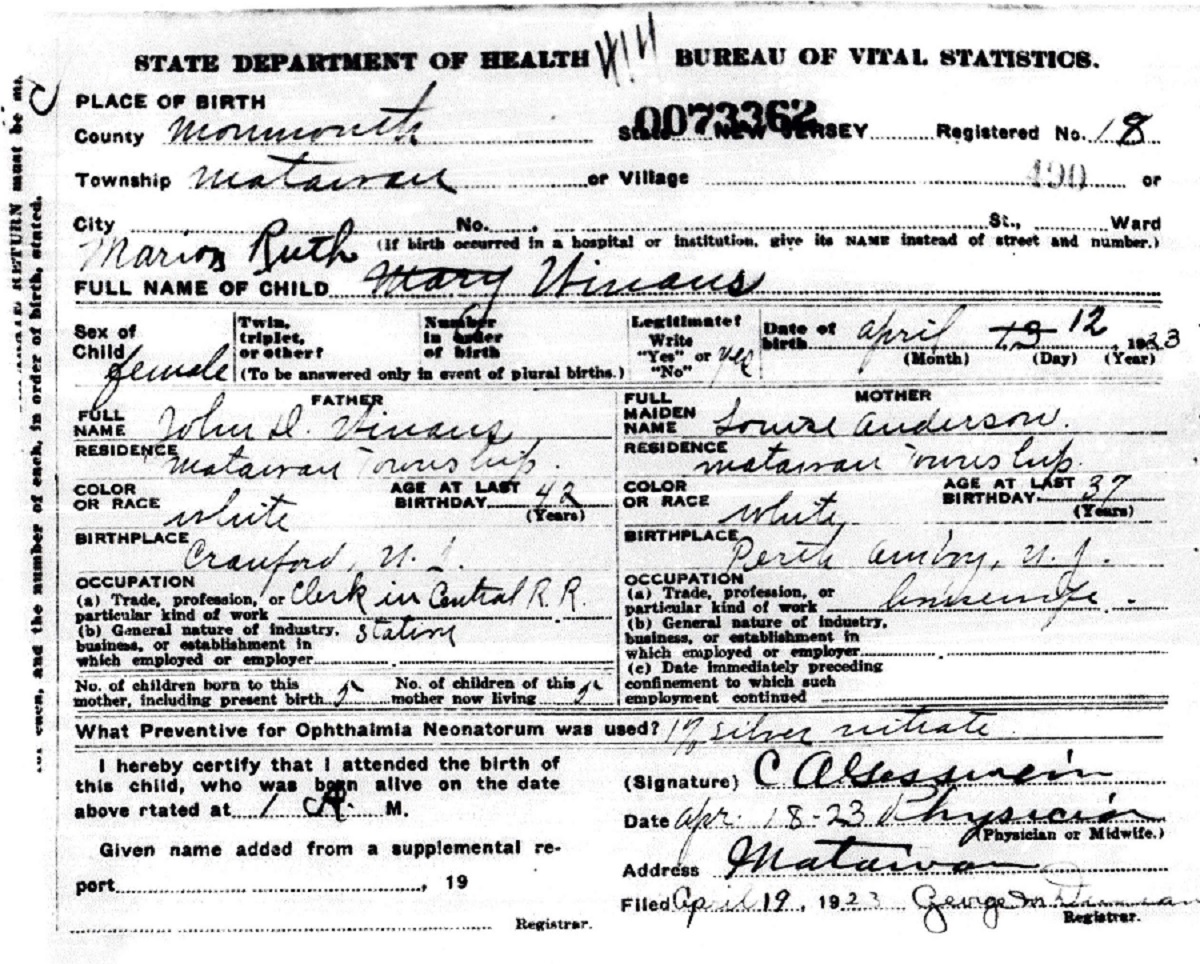 STATE DEPARTMENT OF HEALTH BUREAU OF VITAL STATISTICS.
PLACE OF BIRTH
0073362
County Monmouth State NEW JERSEY Registered No. 18
Township Matawan or Village 490 or
City No. St., Ward
(If birth occurred in a hospital or institution, give its NAME instead of street and number.)
Marion Ruth
FULL NAME OF CHILD Mary Winans
Sex of Child female
Twin, triplet, or other?
Number in order of birth
(To be answered only in event of plural births.)
Legitimate? Write "Yes" or "No" yes
Date of birth April 13 12, 1923
(Month) (Day) (Year)
FATHER
FULL NAME John D. Winans
RESIDENCE Matawan Township.
COLOR OR RACE white
AGE AT LAST BIRTHDAY 42 (Years)
BIRTHPLACE Cranford, N. J.
OCCUPATION
(a) Trade, profession, or particular kind of work Clerk in Central R.R.
(b) General nature of industry, business, or establishment in which employed or employer Station
No. of children born to this mother, including present birth 5
No. of children of this mother now living 5
MOTHER
FULL MAIDEN NAME Louise Anderson.
RESIDENCE Matawan Township.
COLOR OR RACE white
AGE AT LAST BIRTHDAY 37 (Years)
BIRTHPLACE Perth Amboy, N. J.
OCCUPATION
(a) Trade, profession, or particular kind of work housewife.
(b) General nature of industry, business, or establishment in which employed or employer
(c) Date immediately preceding confinement to which such employment continued
What Preventive for Ophthalmia Neonatorum was used? 1% silver nitrate
I hereby certify that I attended the birth of
this child, who was born alive on the date
above rtated at 1 A. M.
Given name added from a supplemental re-
port, 19
Registrar.
(Signature) C A
Date Apr. 18-23 Physician
(Physician or Midwife.)
Address Matawan
Filed April 19, 1923 George
Registrar.
RETURN must be m
each, and the number of each, in order of birth, stated.